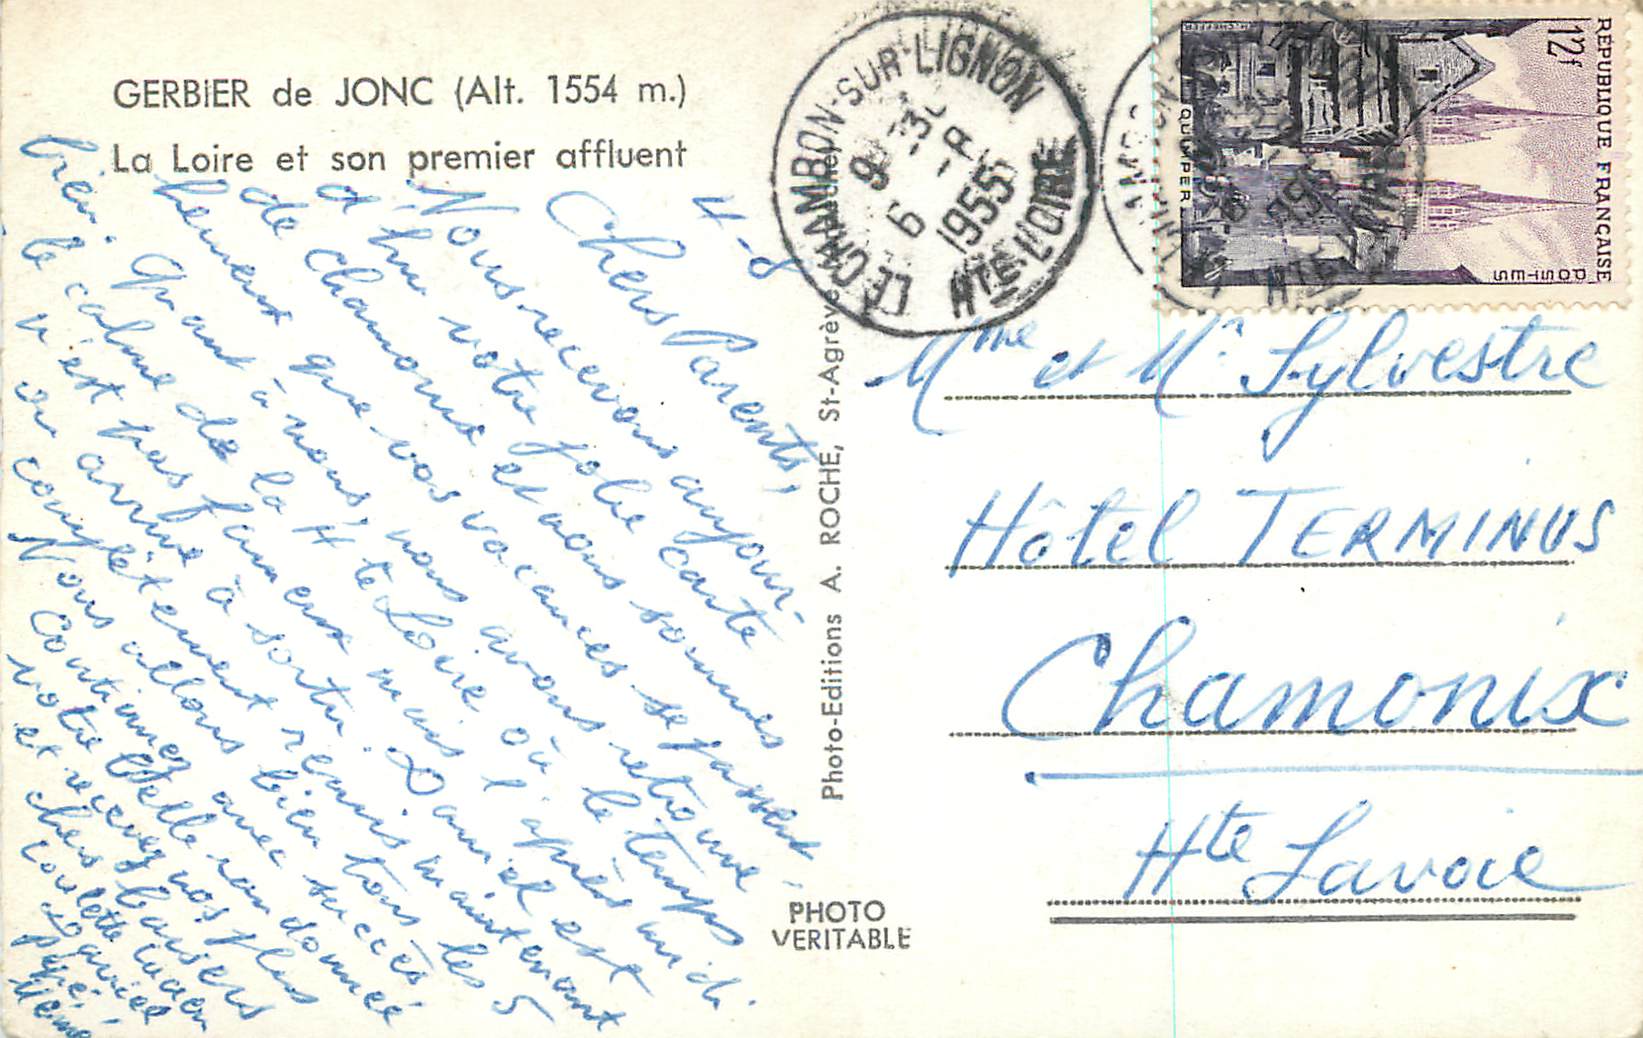 GERBIER de JONC (Alt. 1554 m.)
La Loire et son premier affluent
4-8
Chers Parents,
Nous recevons aujour-
d'hui votre jolie carte
de Chamonix et nous sommes
heureux que vos vacances se passent
bien. Quant à nous, nous avons retrouvé
le calme de la Hte Loire où le temps
n'est pas fameux mais l'après midi
on arrive à sortir. Daniel est
complètement remis maintenant
Nous allons bien tous les 5
Continuez avec succès
votre belle randonnée
et recevez nos plus
chers baisers
Lucien
Daniel
Pépé
Mémé
Photo-Editions A. ROCHE, St-Agrève
PHOTO
VERITABLE
LE CHAMBON-SUR-LIGNON
9 -30
6 -8
1955
HTE LOIRE
RÉPUBLIQUE FRANÇAISE
12f
POSTES
QUIMPER
Mme et Mr Sylvestre
Hôtel TERMINUS
Chamonix
Hte Savoie